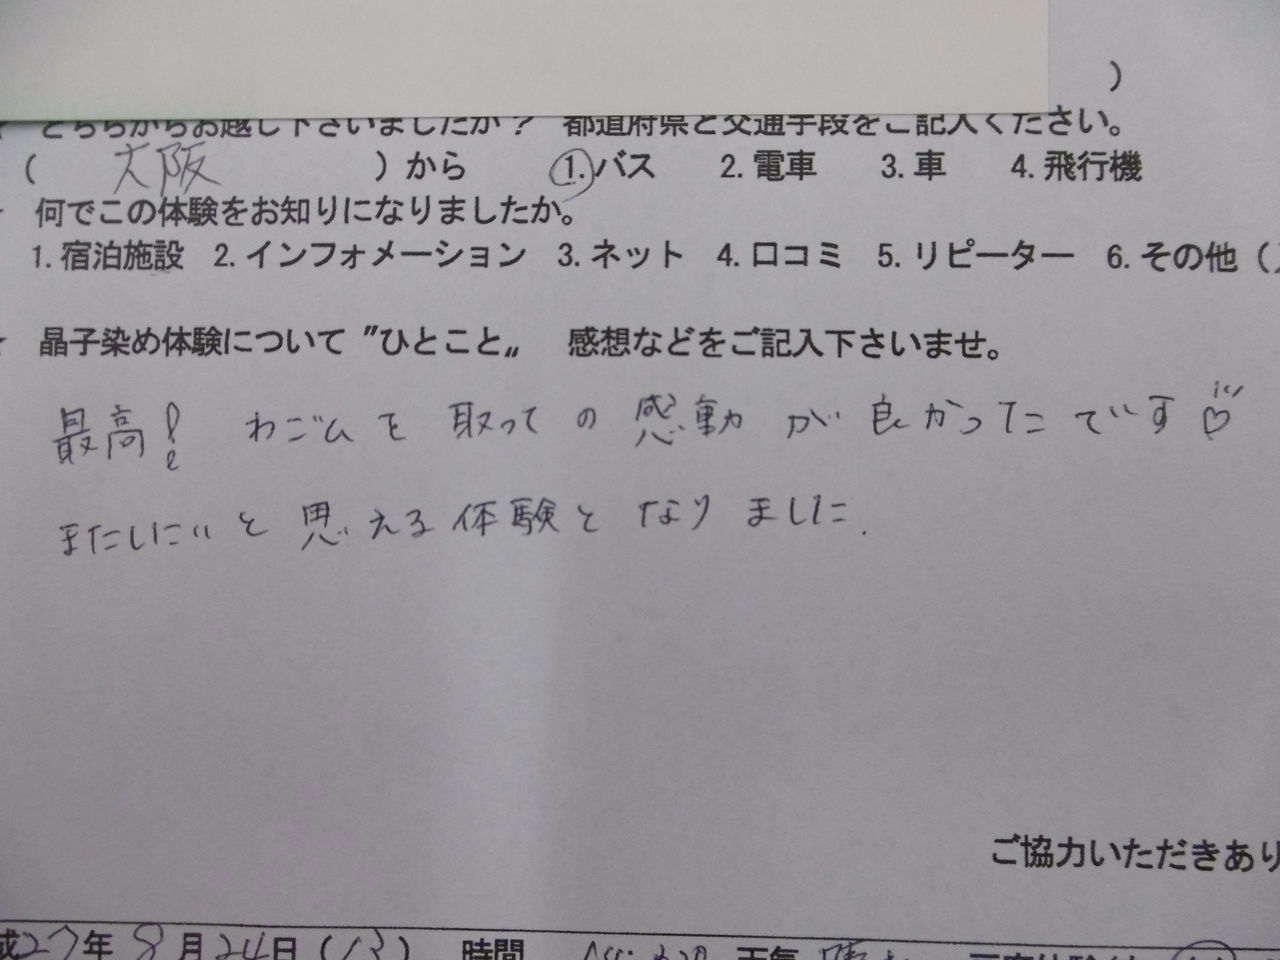 )
どちらからお越し下さいましたか？ 都道府県と交通手段をご記入ください。
( 大阪 ) から 1. バス 2. 電車 3. 車 4. 飛行機
何でこの体験をお知りになりましたか。
1. 宿泊施設 2. インフォメーション 3. ネット 4. 口コミ 5. リピーター 6. その他（
晶子染め体験について〝ひとこと〟 感想などをご記入下さいませ。
最高! わごムを取っての感動が良かったです♡
またしたいと思える体験となりました.
ご協力いただきあり
成27年 8月24日( ) 時間 天気